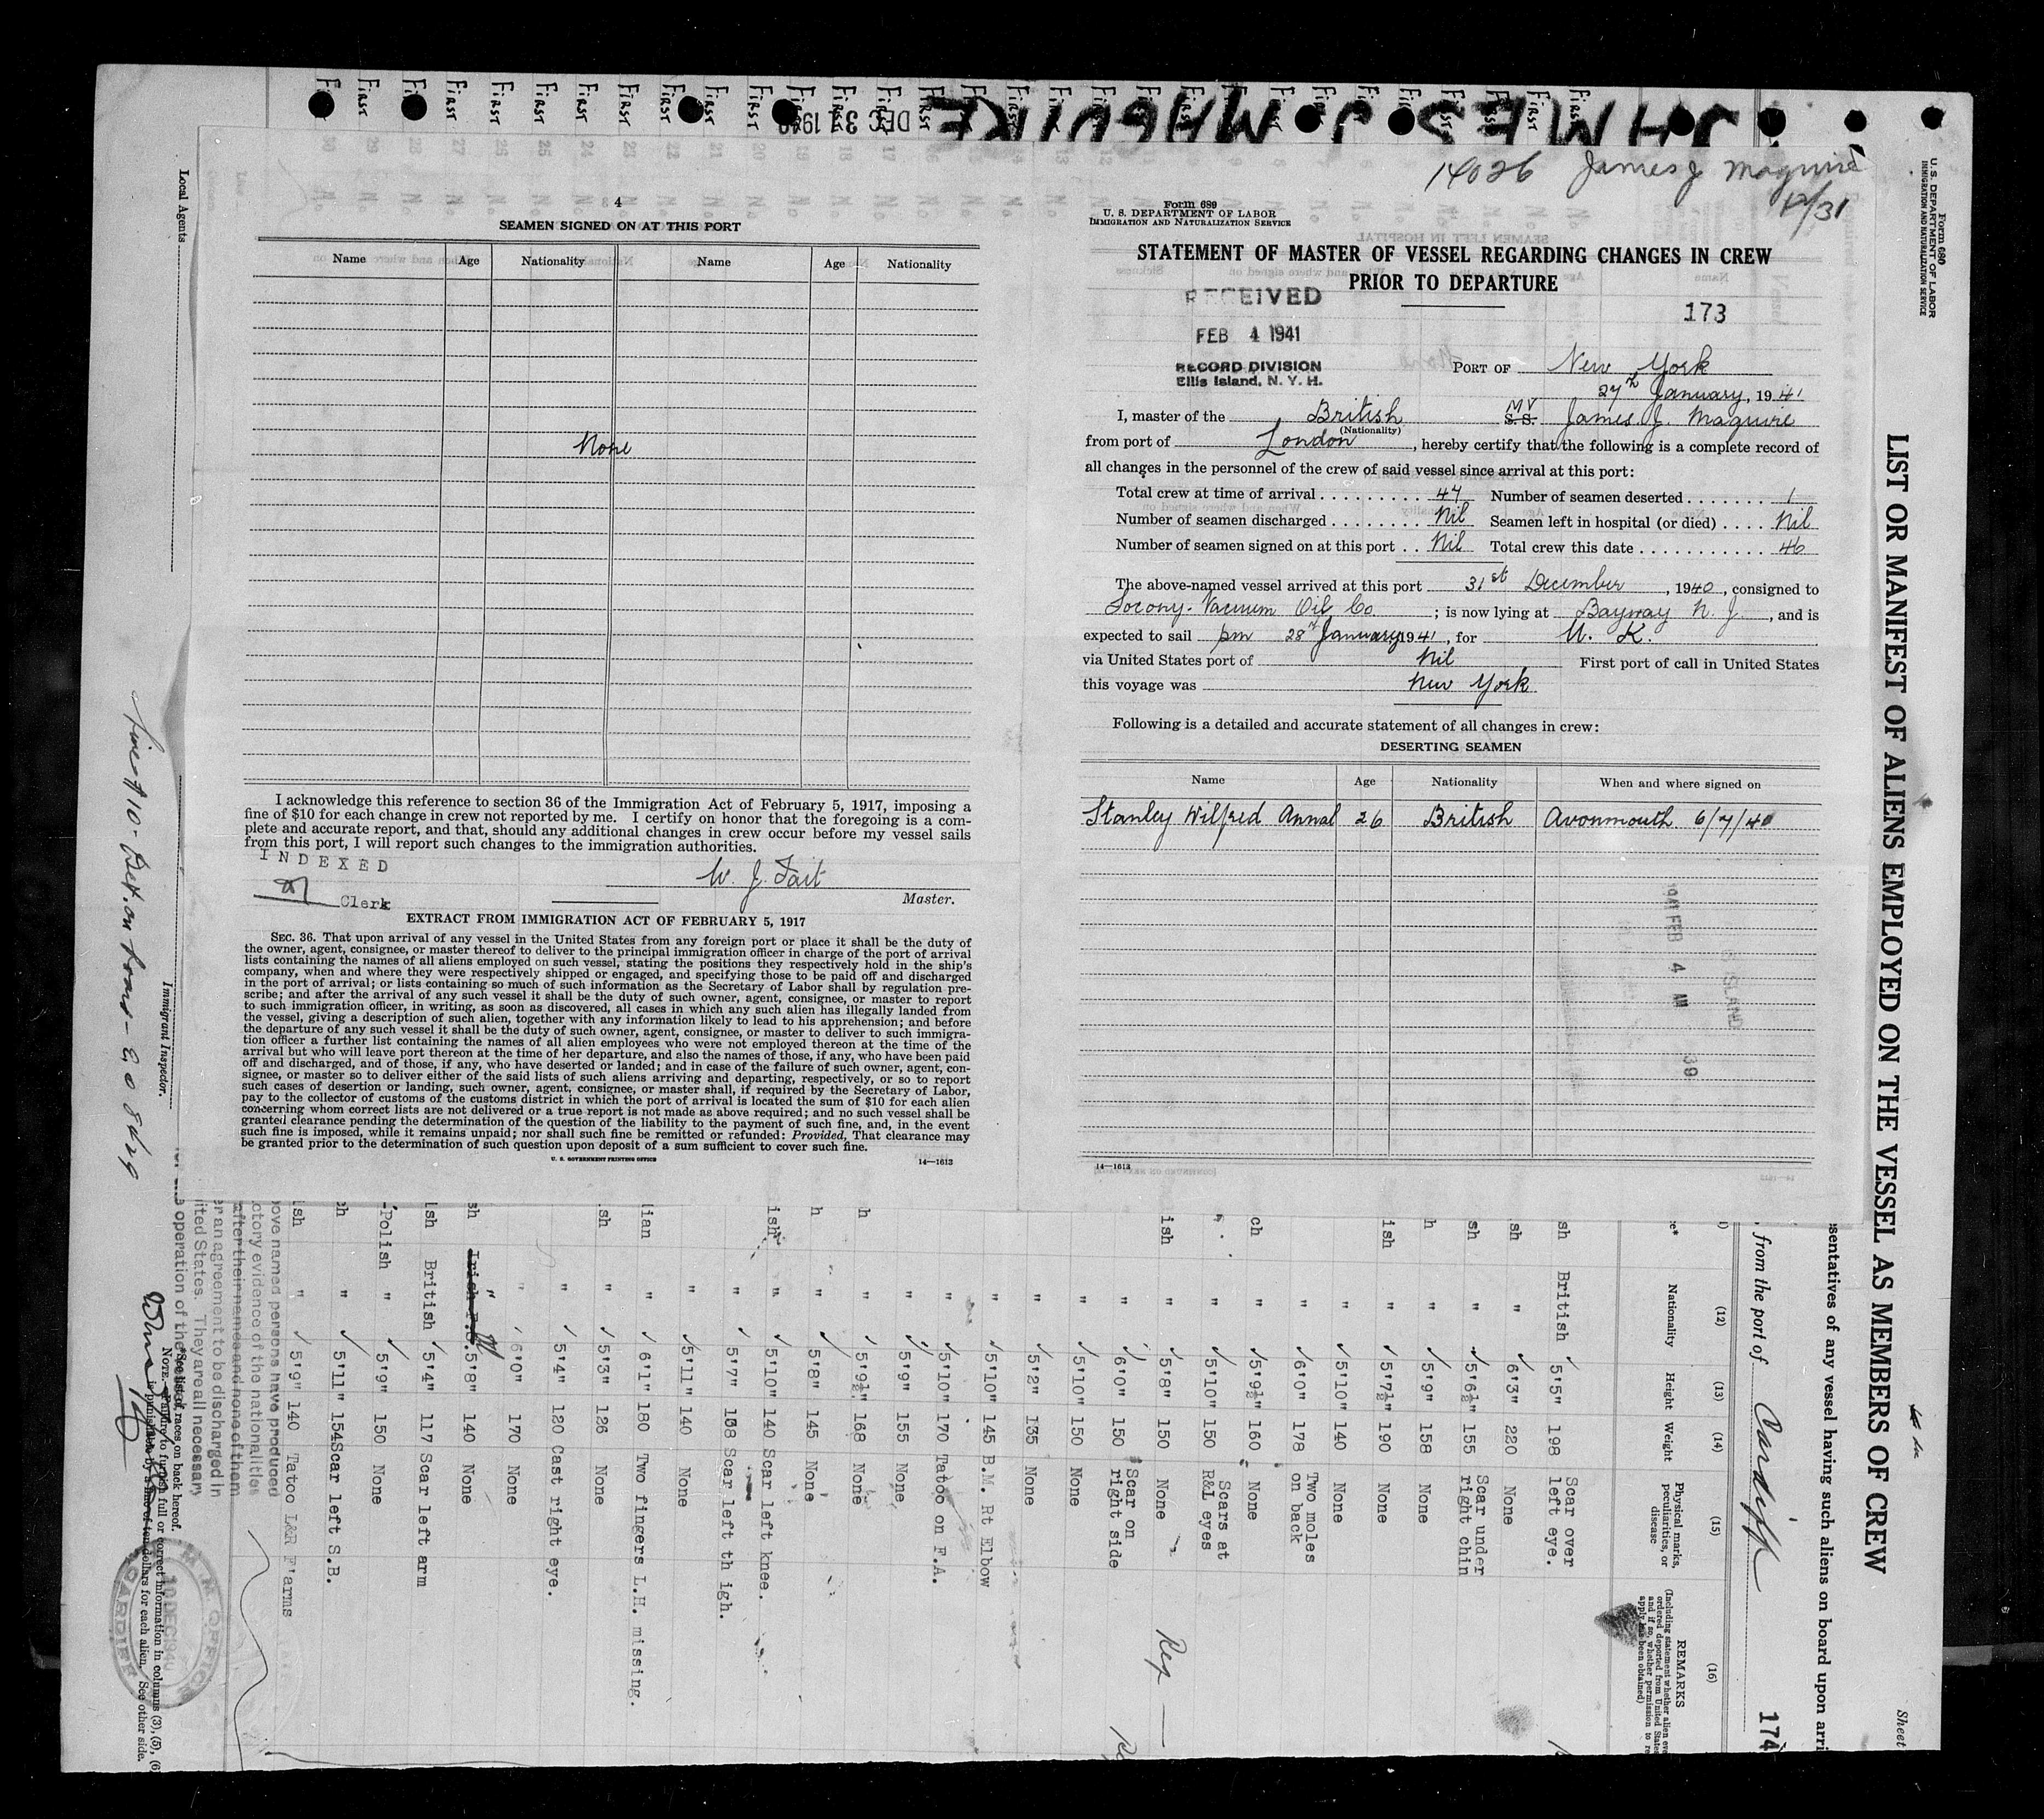 JAMES J. MAGUIRE
DEC 31 1940
FIRST FIRST FIRST FIRST FIRST FIRST FIRST FIRST FIRST FIRST FIRST FIRST FIRST
14026 James J Maguire
12/31
4
SEAMEN SIGNED ON AT THIS PORT
Name Age Nationality Name Age Nationality
None
I acknowledge this reference to section 36 of the Immigration Act of February 5, 1917, imposing a
fine of $10 for each change in crew not reported by me. I certify on honor that the foregoing is a com-
plete and accurate report, and that, should any additional changes in crew occur before my vessel sails
from this port, I will report such changes to the immigration authorities.
INDEXED
Clerk
W. J. Tait
Master.
EXTRACT FROM IMMIGRATION ACT OF FEBRUARY 5, 1917
SEC. 36. That upon arrival of any vessel in the United States from any foreign port or place it shall be the duty of
the owner, agent, consignee, or master thereof to deliver to the principal immigration officer in charge of the port of arrival
lists containing the names of all aliens employed on such vessel, stating the positions they respectively hold in the ship's
company, when and where they were respectively shipped or engaged, and specifying those to be paid off and discharged
in the port of arrival; or lists containing so much of such information as the Secretary of Labor shall by regulation pre-
scribe; and after the arrival of any such vessel it shall be the duty of such owner, agent, consignee, or master to report
to such immigration officer, in writing, as soon as discovered, all cases in which any such alien has illegally landed from
the vessel, giving a description of such alien, together with any information likely to lead to his apprehension; and before
the departure of any such vessel it shall be the duty of such owner, agent, consignee, or master to deliver to such immigra-
tion officer a further list containing the names of all alien employees who were not employed thereon at the time of the
arrival but who will leave port thereon at the time of her departure, and also the names of those, if any, who have been paid
off and discharged, and of those, if any, who have deserted or landed; and in case of the failure of such owner, agent, con-
signee, or master so to deliver either of the said lists of such aliens arriving and departing, respectively, or so to report
such cases of desertion or landing, such owner, agent, consignee, or master shall, if required by the Secretary of Labor,
pay to the collector of customs of the customs district in which the port of arrival is located the sum of $10 for each alien
concerning whom correct lists are not delivered or a true report is not made as above required; and no such vessel shall be
granted clearance pending the determination of the question of the liability to the payment of such fine, and, in the event
such fine is imposed, while it remains unpaid; nor shall such fine be remitted or refunded: Provided, That clearance may
be granted prior to the determination of such question upon deposit of a sum sufficient to cover such fine.
U. S. GOVERNMENT PRINTING OFFICE 14—1613
Form 689
U. S. DEPARTMENT OF LABOR
IMMIGRATION AND NATURALIZATION SERVICE
STATEMENT OF MASTER OF VESSEL REGARDING CHANGES IN CREW
PRIOR TO DEPARTURE
RECEIVED
FEB 4 1941
RECORD DIVISION
Ellis Island, N. Y. H.
173
PORT OF New York
27th January, 1941
I, master of the British M V S. S. James J. Maguire
(Nationality)
from port of London, hereby certify that the following is a complete record of
all changes in the personnel of the crew of said vessel since arrival at this port:
Total crew at time of arrival 47 Number of seamen deserted 1
Number of seamen discharged Nil Seamen left in hospital (or died) Nil
Number of seamen signed on at this port Nil Total crew this date 46
The above-named vessel arrived at this port 31st December, 1940, consigned to
Socony-Vacuum Oil Co; is now lying at Bayway N. J., and is
expected to sail pm 28th January 1941, for U. K.
via United States port of Nil First port of call in United States
this voyage was New York
Following is a detailed and accurate statement of all changes in crew:
DESERTING SEAMEN
Name Age Nationality When and where signed on
Stanley Wilfred Annal 26 British Avonmouth 6/7/40
1941 FEB 4 AM 39
14—1613
Form 680
U. S. DEPARTMENT OF LABOR
IMMIGRATION AND NATURALIZATION SERVICE
LIST OR MANIFEST OF ALIENS EMPLOYED ON THE VESSEL AS MEMBERS OF CREW
Sheet
sentatives of any vessel having such aliens on board upon arri
, from the port of Cardiff
174
(12) (13) (14) (15) (16)
Nationality Height Weight Physical marks, peculiarities, or disease REMARKS
(Including statement whether alien ever
ordered deported from United States
and if so, whether permission to re
apply has been obtained)
sh British 5'5" 198 Scar over left eye.
sh " 6'3" 220 None
sh " 5'6½" 155 Scar under right chin
h " 5'9" 158 None
ish " 5'7½" 190 None
" 5'10" 140 None
" 6'0" 178 Two moles on back
ch " 5'9½" 160 None
" 5'10" 150 Scars at R&L eyes
ish " 5'8" 150 None Reg
" 6'0" 150 Scar on right side
" 5'10" 150 None
" 5'2" 135 None
" 5'10" 145 B.M. Rt Elbow
" 5'10" 170 Tatoo on F.A.
" 5'9" 155 None
h " 5'9½" 168 None
h " 5'8" 145 None
ish " 5'10" 140 Scar left knee.
" 5'7" 138 Scar left th igh.
" 5'11" 140 None
lian " 6'1" 180 Two fingers L.H. missing.
sh " 5'3" 126 None
" 5'4" 120 Cast right eye.
" 6'0" 170 None
sh " 5'8" 140 None
lsh British 5'4" 117 Scar left arm
-Polish " 5'9" 150 None
eh " 5'11" 154 Scar left S.B.
ish " 5'9" 140 Tatoo L&R F'arms
ove named persons have produced
ctory evidence of the nationalities
after their names and none of them
er an agreement to be discharged in
ited States. They are all necessary
operation of the
*See list of races on back hereof.
NOTE.—Failure to furnish full or correct information in columns (3), (5), (6
is punishable by a fine of ten dollars for each alien. See other side.
M. M. OFFICE
10 DEC 1940
CARDIFF
Local Agents
Immigrant Inspector.